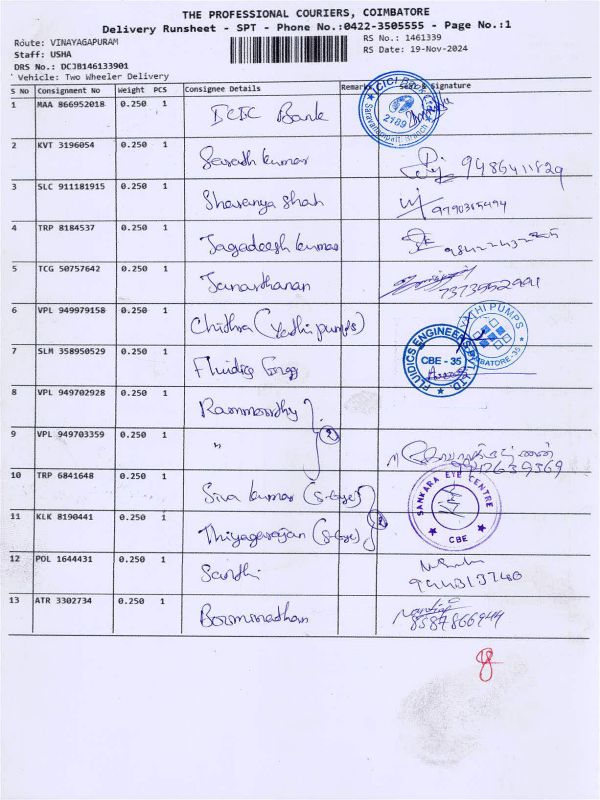 THE PROFESSIONAL COURIERS, COIMBATORE
Delivery Runsheet - SPT - Phone No.:0422-3505555 - Page No.:1
Route: VINAYAGAPURAM RS No.: 1461339
Staff: USHA RS Date: 19-Nov-2024
DRS No.: DCJB146133901
Vehicle: Two Wheeler Delivery
S No Consignment No Weight PCS Consignee Details Remarks Seal & Signature
1 MAA 866952018 0.250 1 ICIC Bank
ICICI Bank
2189
Saravanampatti Branch
2 KVT 3196054 0.250 1 Sarath kumar
3 SLC 911181915 0.250 1 Sharanya Shah
4 TRP 8184537 0.250 1 Jagadeesh kumar
5 TCG 50757642 0.250 1 Janarthanan
6 VPL 949979158 0.250 1 Chithra (Yadhi pumps)
7 SLM 358950529 0.250 1 Fluidics Engg
FLUIDICS ENGINEERS PVT. LTD.
CBE - 35
8 VPL 949702928 0.250 1 Rammoorthy
9 VPL 949703359 0.250 1 " 2
10 TRP 6841648 0.250 1 Siva kumar (S-Eye)
11 KLK 8190441 0.250 1 Thiyagarajan (S-Eye) 2
SANKARA EYE CENTRE
CBE
12 POL 1644431 0.250 1
13 ATR 3302734 0.250 1